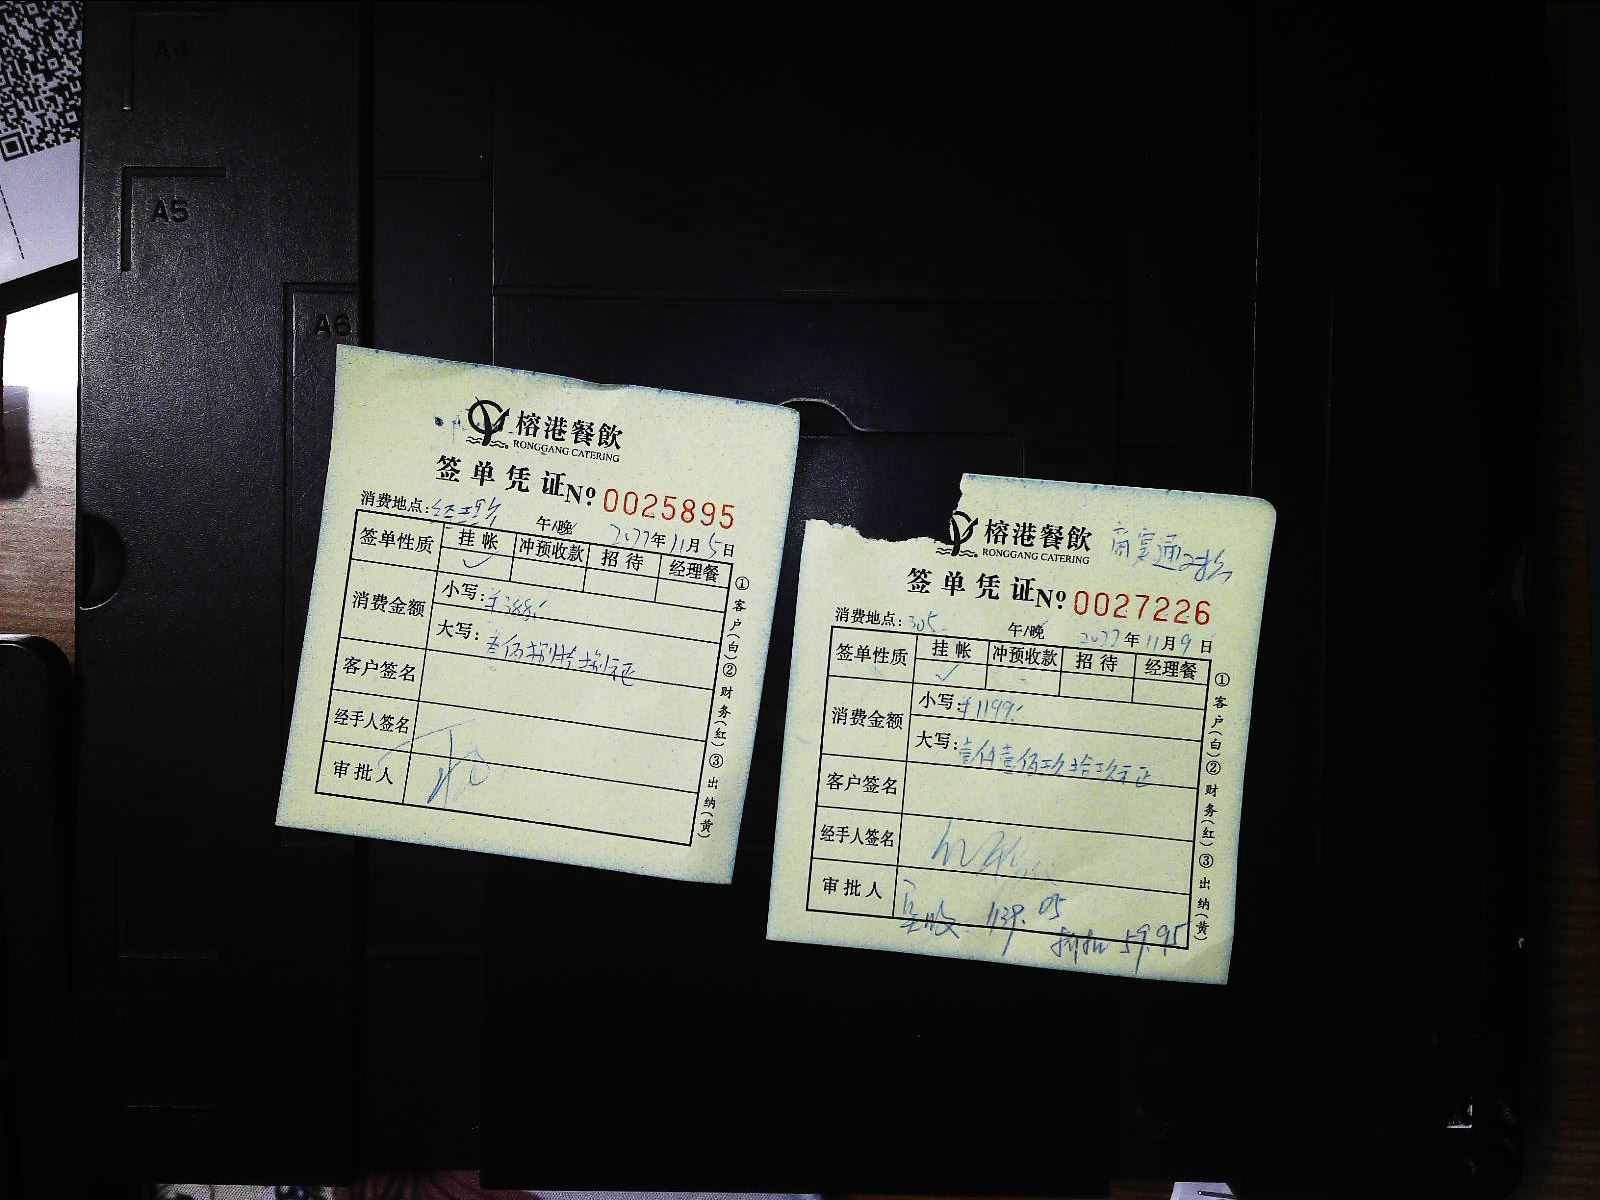 A4
A5
A6
榕港餐飲
RONGGANG CATERING
签单凭证 № 0025895
消费地点: 午/晚 2022年11月5日
签单性质 挂帐 冲预收款 招待 经理餐
✓
消费金额 小写: ¥388.
大写:
客户签名
经手人签名
审批人
①客户(白)②财务(红)③出纳(黄)
榕港餐飲
RONGGANG CATERING
签单凭证 № 0027226
消费地点: 305. 午/晚 2022年11月9日
签单性质 挂帐 冲预收款 招待 经理餐
✓
消费金额 小写: ¥1199.
大写: 壹仟壹佰玖拾玖元正
客户签名
经手人签名
审批人
实收 1139.05
折扣 59.95
①客户(白)②财务(红)③出纳(黄)